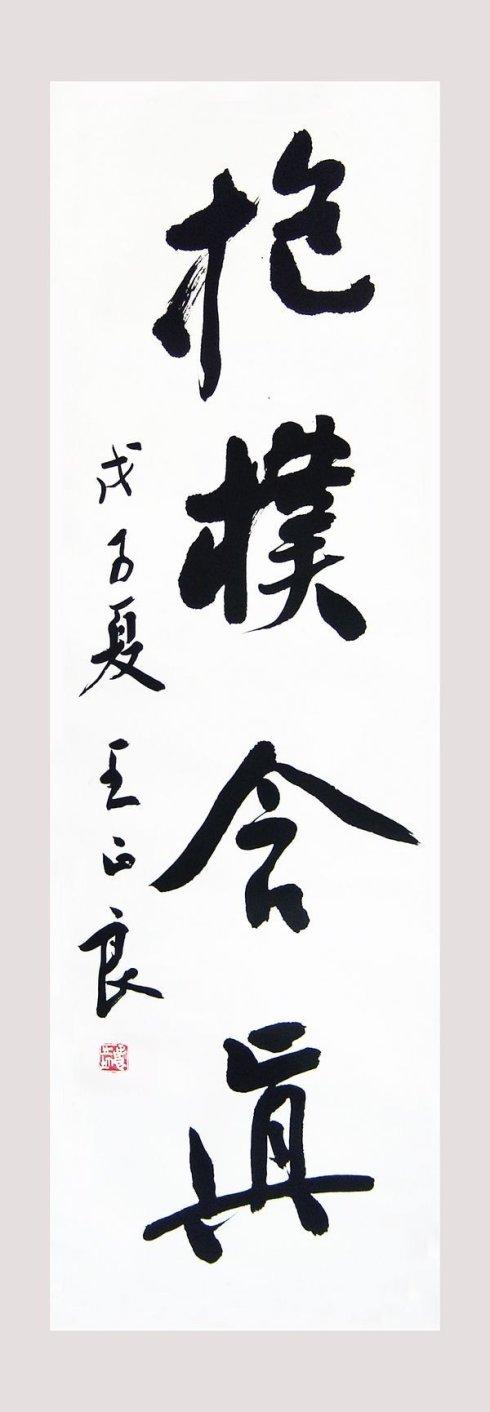 抱樸含真
戊子夏 王正良